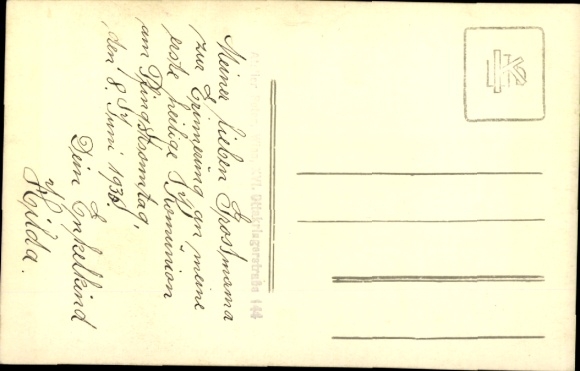 Meiner lieben Grossmama
zur Erinnerung an meine
erste heilige Komunion
am Pfingstsonntag,
den 8. Juni 1930.
Dein Enkelkind
Hilda.
XVI. Ottakringerstraße 144